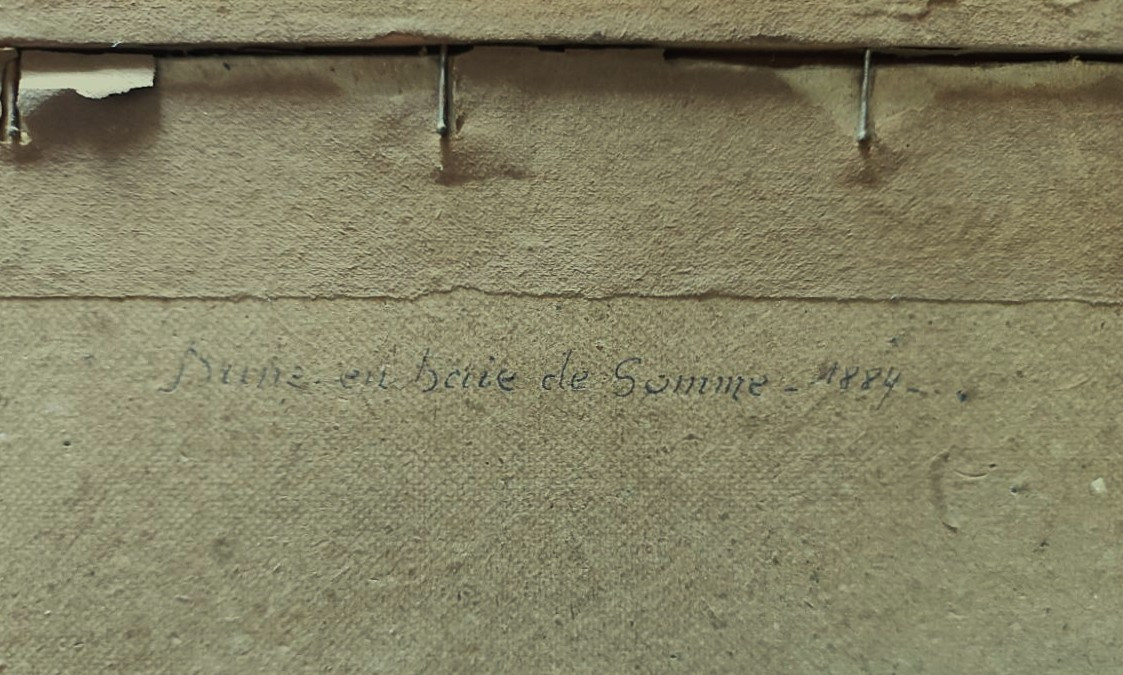 Dune en baie de Somme - 1884 -